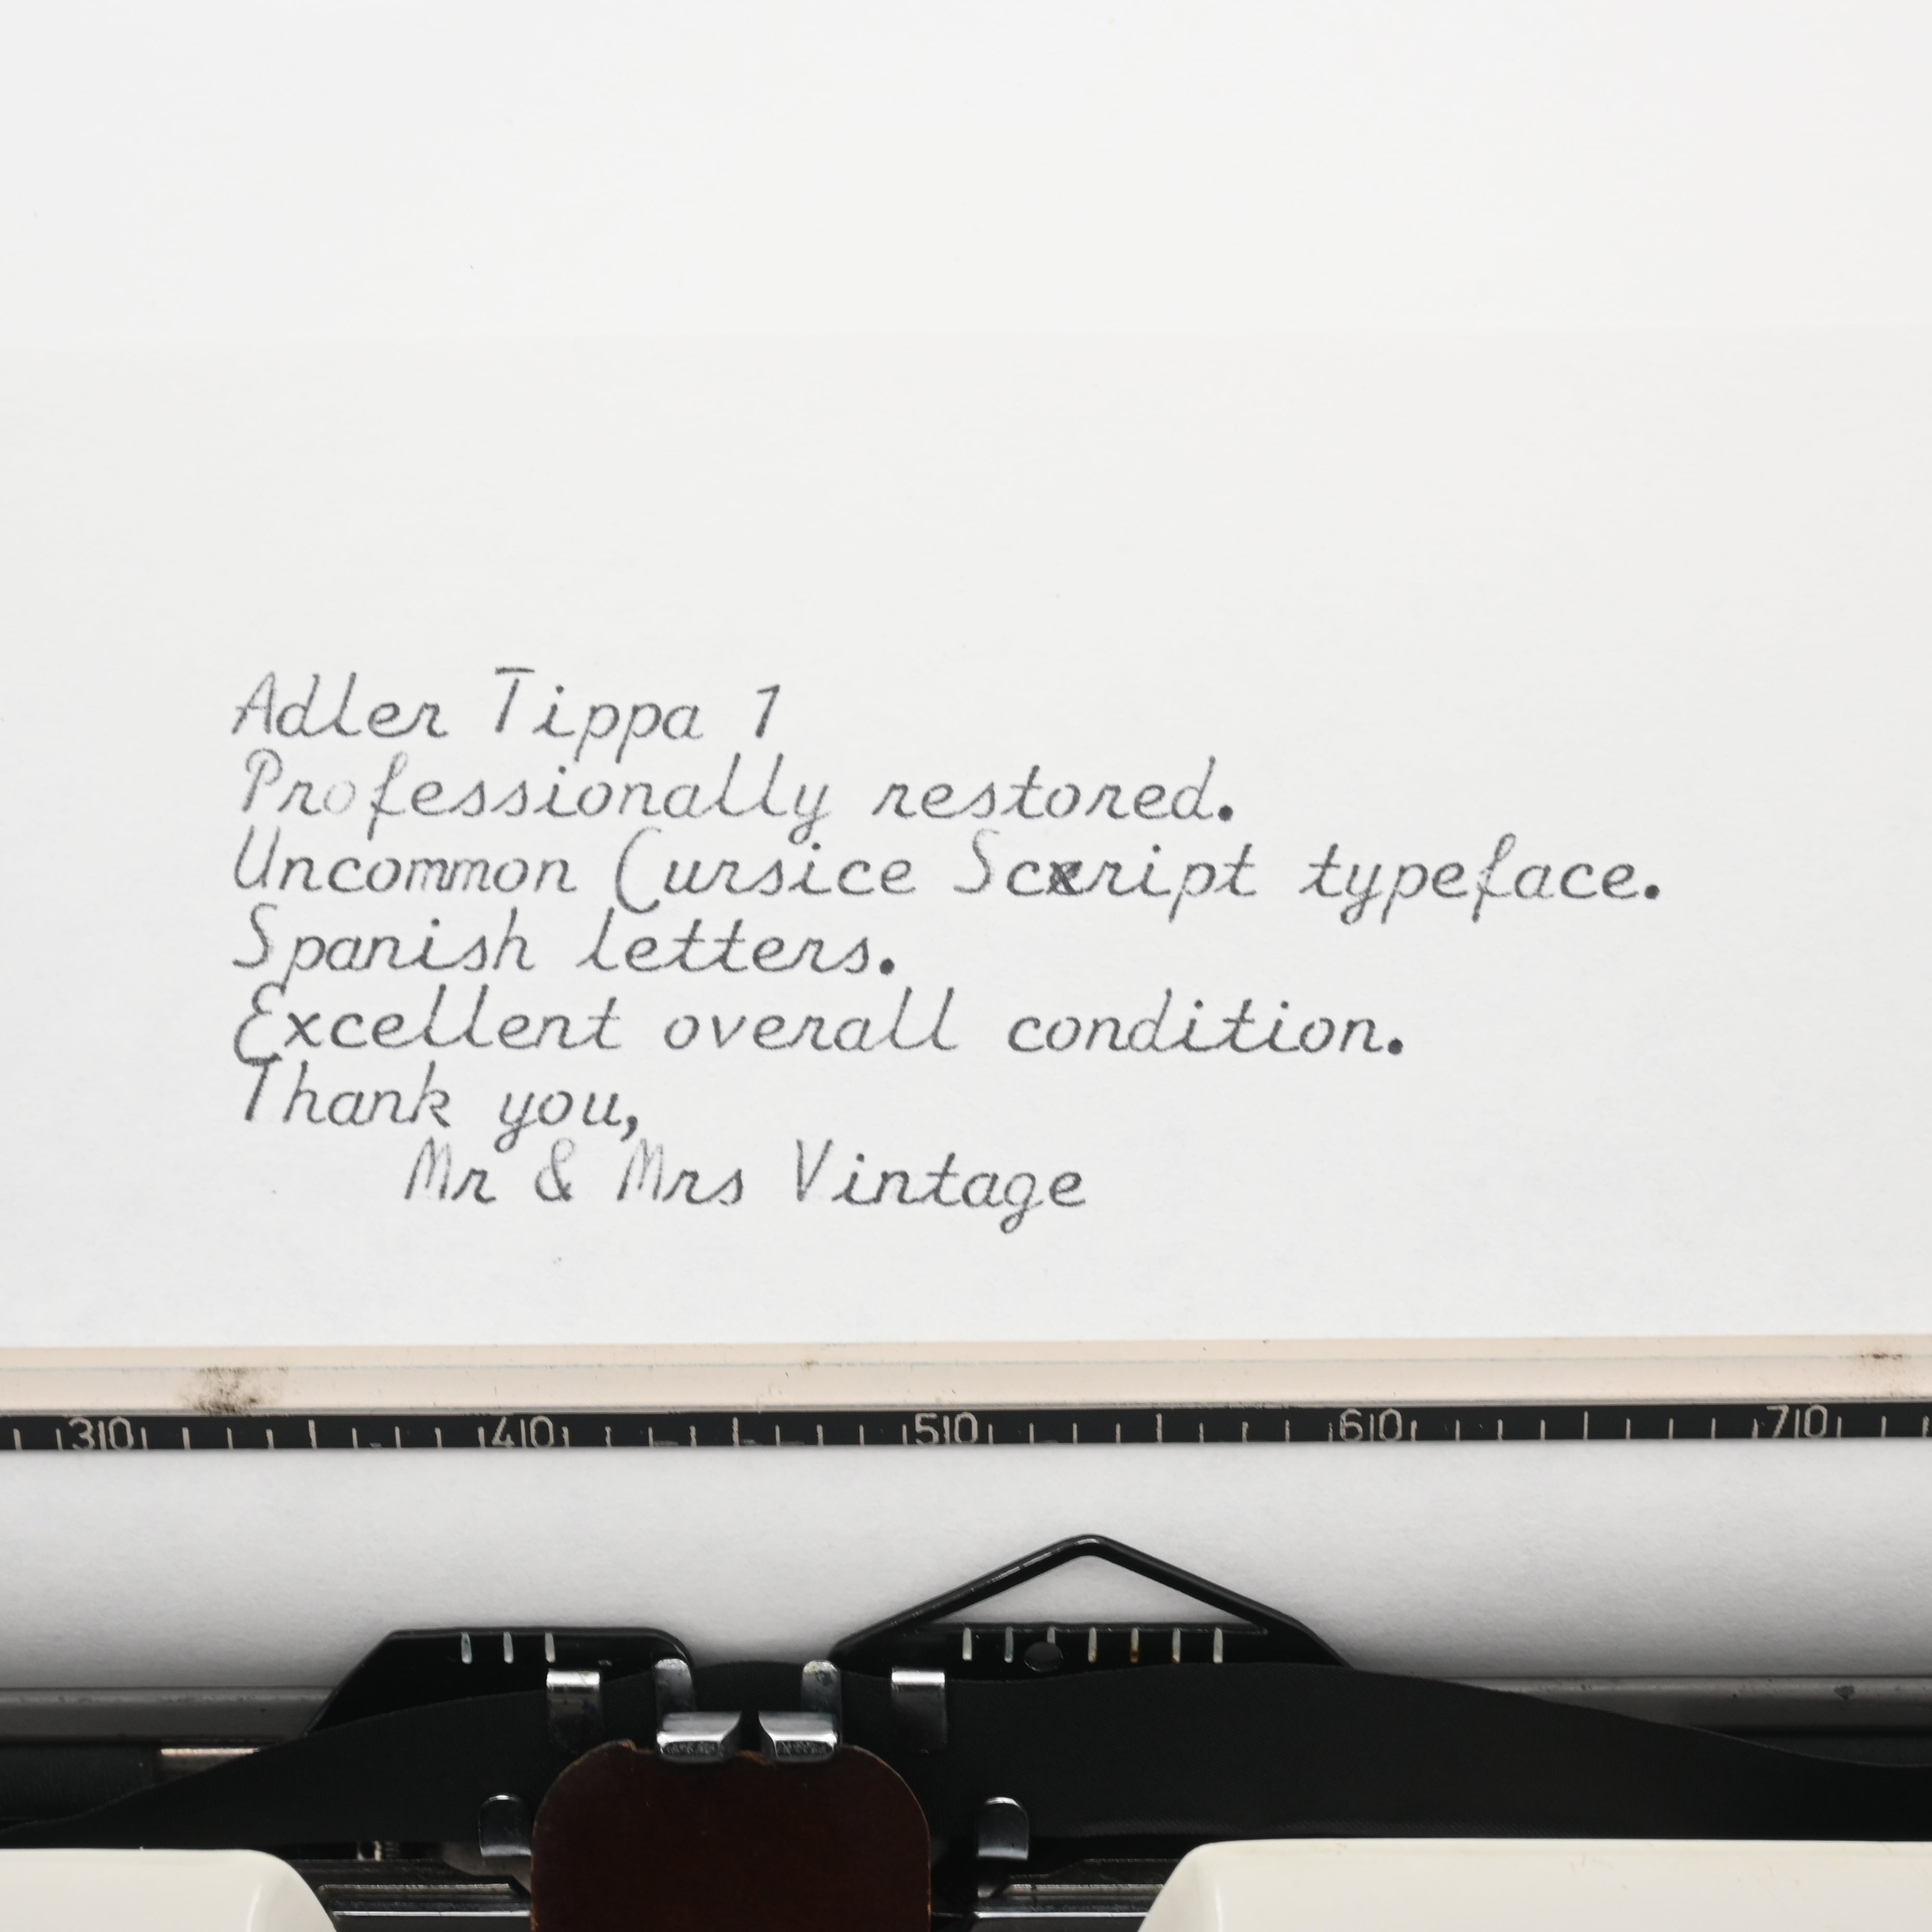 Adler Tippa 1
Professionally restored.
Uncommon Cursice Scxript typeface.
Spanish letters.
Excellent overall condition.
Thank you,
Mr & Mrs Vintage
30 40 50 60 70